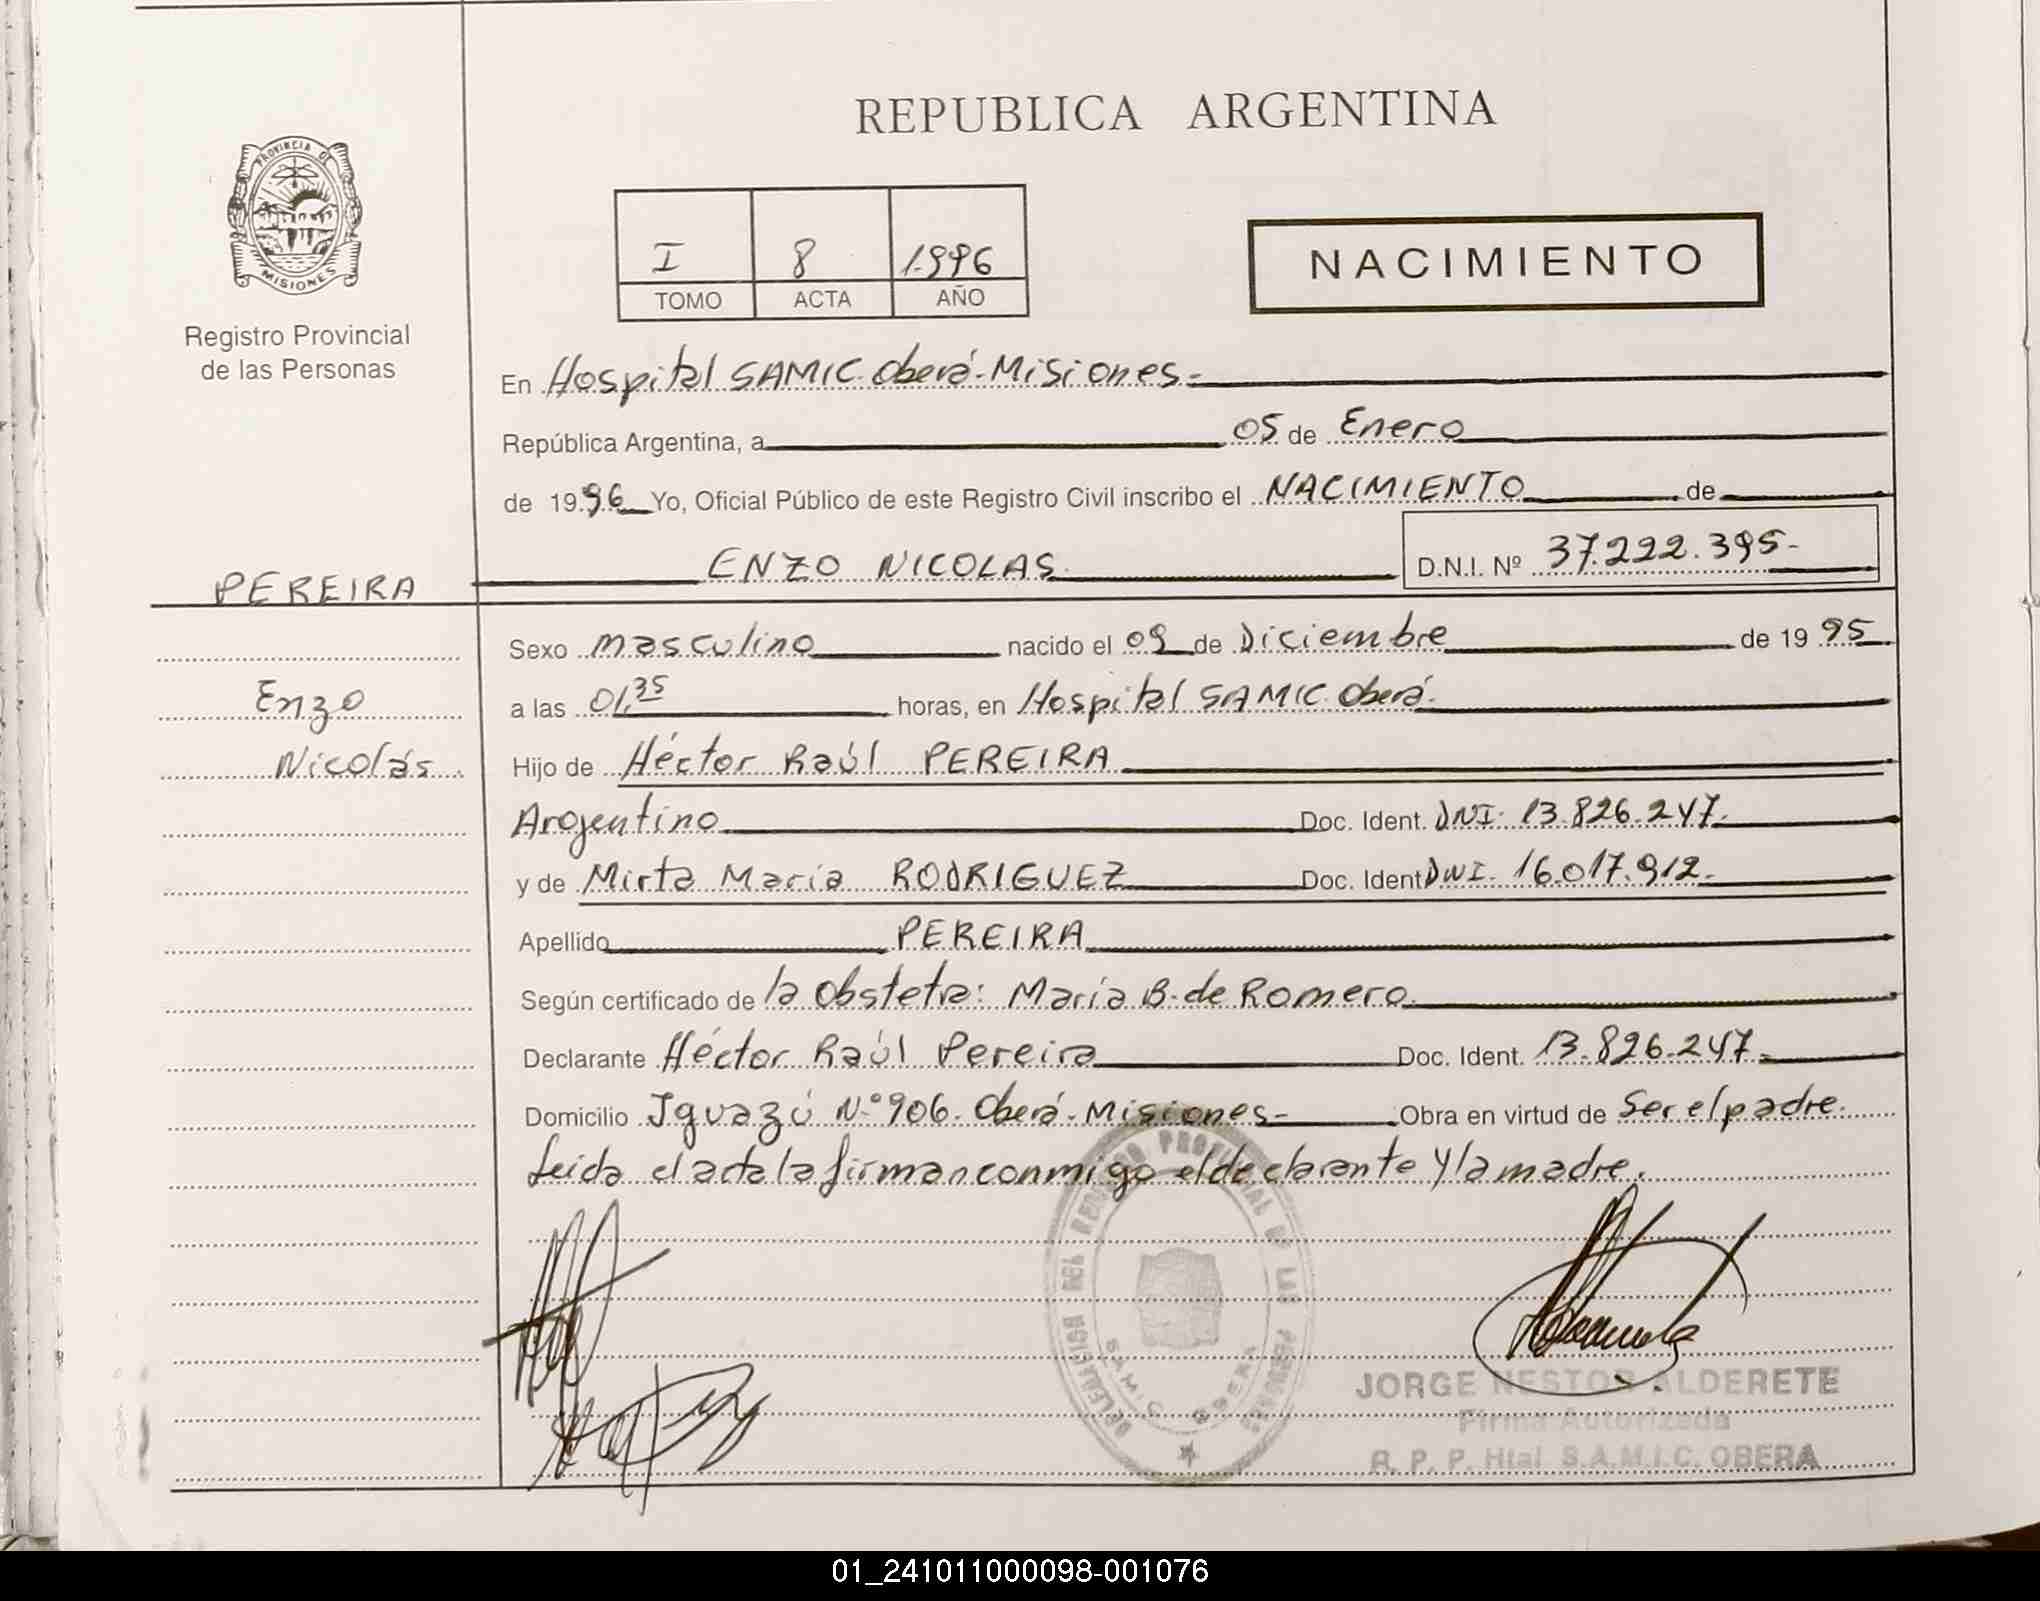 REPUBLICA ARGENTINA
PROVINCIA DE
MISIONES
Registro Provincial
de las Personas
I 8 1.996
TOMO ACTA AÑO
NACIMIENTO
En Hospital SAMIC. Oberá-Misiones-
República Argentina, a 05 de Enero
de 1996 Yo, Oficial Público de este Registro Civil inscribo el NACIMIENTO de
PEREIRA ENZO NICOLAS D.N.I. Nº 37.222.395-
Sexo masculino nacido el 09 de Diciembre de 1995
Enzo a las 01,35 horas, en Hospital SAMIC. Oberá.
Nicolás. Hijo de Héctor Raúl PEREIRA
Argentino Doc. Ident. DNI: 13.826.247.
y de Mirta Maria RODRIGUEZ Doc. Ident DNI. 16.017.912.
Apellido PEREIRA
Según certificado de la Obstetra: María B. de Romero.
Declarante Héctor Raúl Pereira Doc. Ident. 13.826.247.
Domicilio Iguazú N.º 906. Oberá-Misiones- Obra en virtud de Ser el padre.
Leida el acta la firman conmigo el declarante y la madre.
DELEGACION DEL REGISTRO PROVINCIAL DE LAS PERSONAS
SAMIC OBERA
JORGE NESTOR ALDERETE
Firma Autorizada
R. P. P. Htal S.A.M.I.C. OBERA
01_241011000098-001076